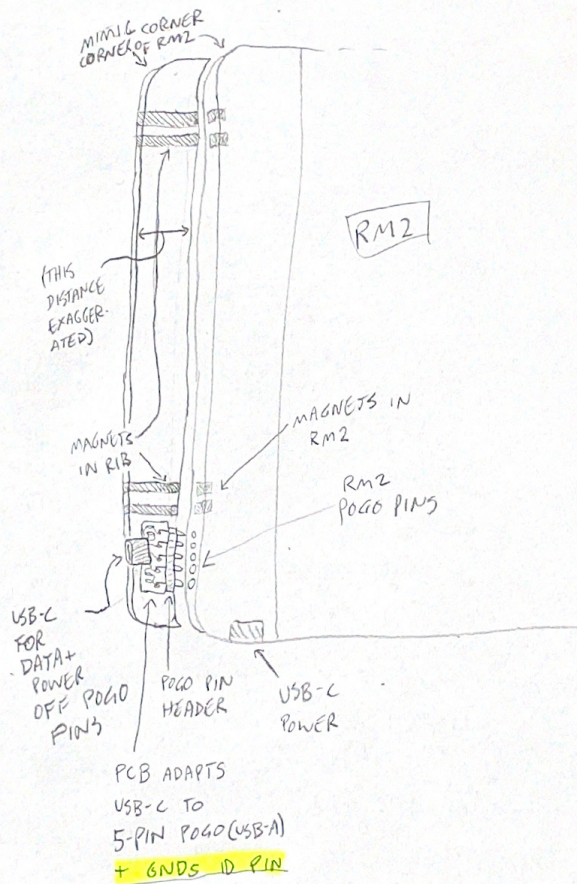 MIMIC CORNER
CORNER OF RM2
RM2
(THIS
DISTANCE
EXAGGER-
ATED)
MAGNETS
IN RIB
MAGNETS IN
RM2
RM2
POGO PINS
USB-C
FOR
DATA+
POWER
OFF POGO
PINS
POGO PIN
HEADER
USB-C
POWER
PCB ADAPTS
USB-C TO
5-PIN POGO (USB-A)
+ GNDS ID PIN